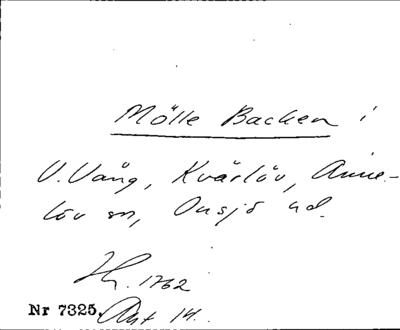 Mölle Backen i
V. Vång, Kvärlöv, Anne-
löv sn, Onsjö hd.
Hy. 1762
Nr 7325. Akt 14.